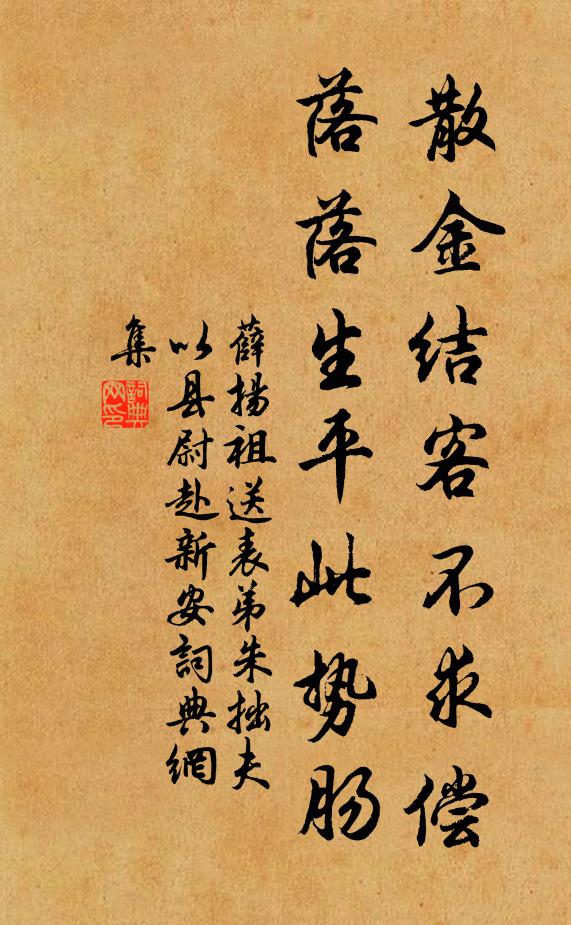 散金结客不求偿
落落生平此势肠
薛揚祖送表弟朱拙夫
以县尉赴新安詞典網
集
詞典網印